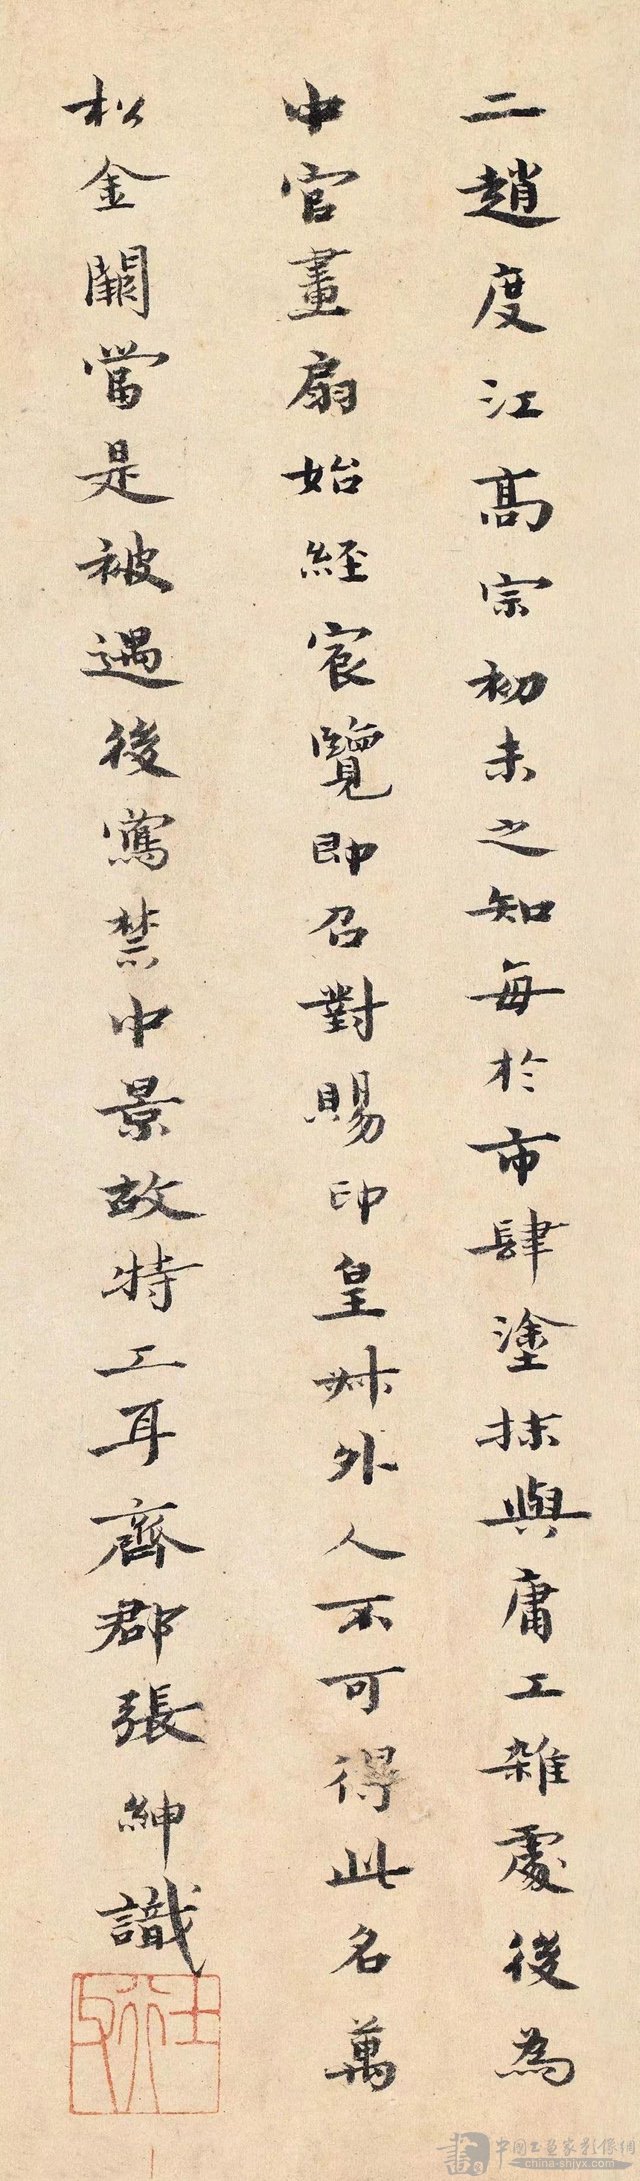 二趙度江高宗初未之知每於市肆塗抹與庸工雜處後為
中官畫扇始經宸覽即召對賜印皇妹外人不可得此名萬
松金闕當是被遇後寫禁中景故特工耳齊郡張紳識
書画 中國書画家影像網
china-shjyx.com